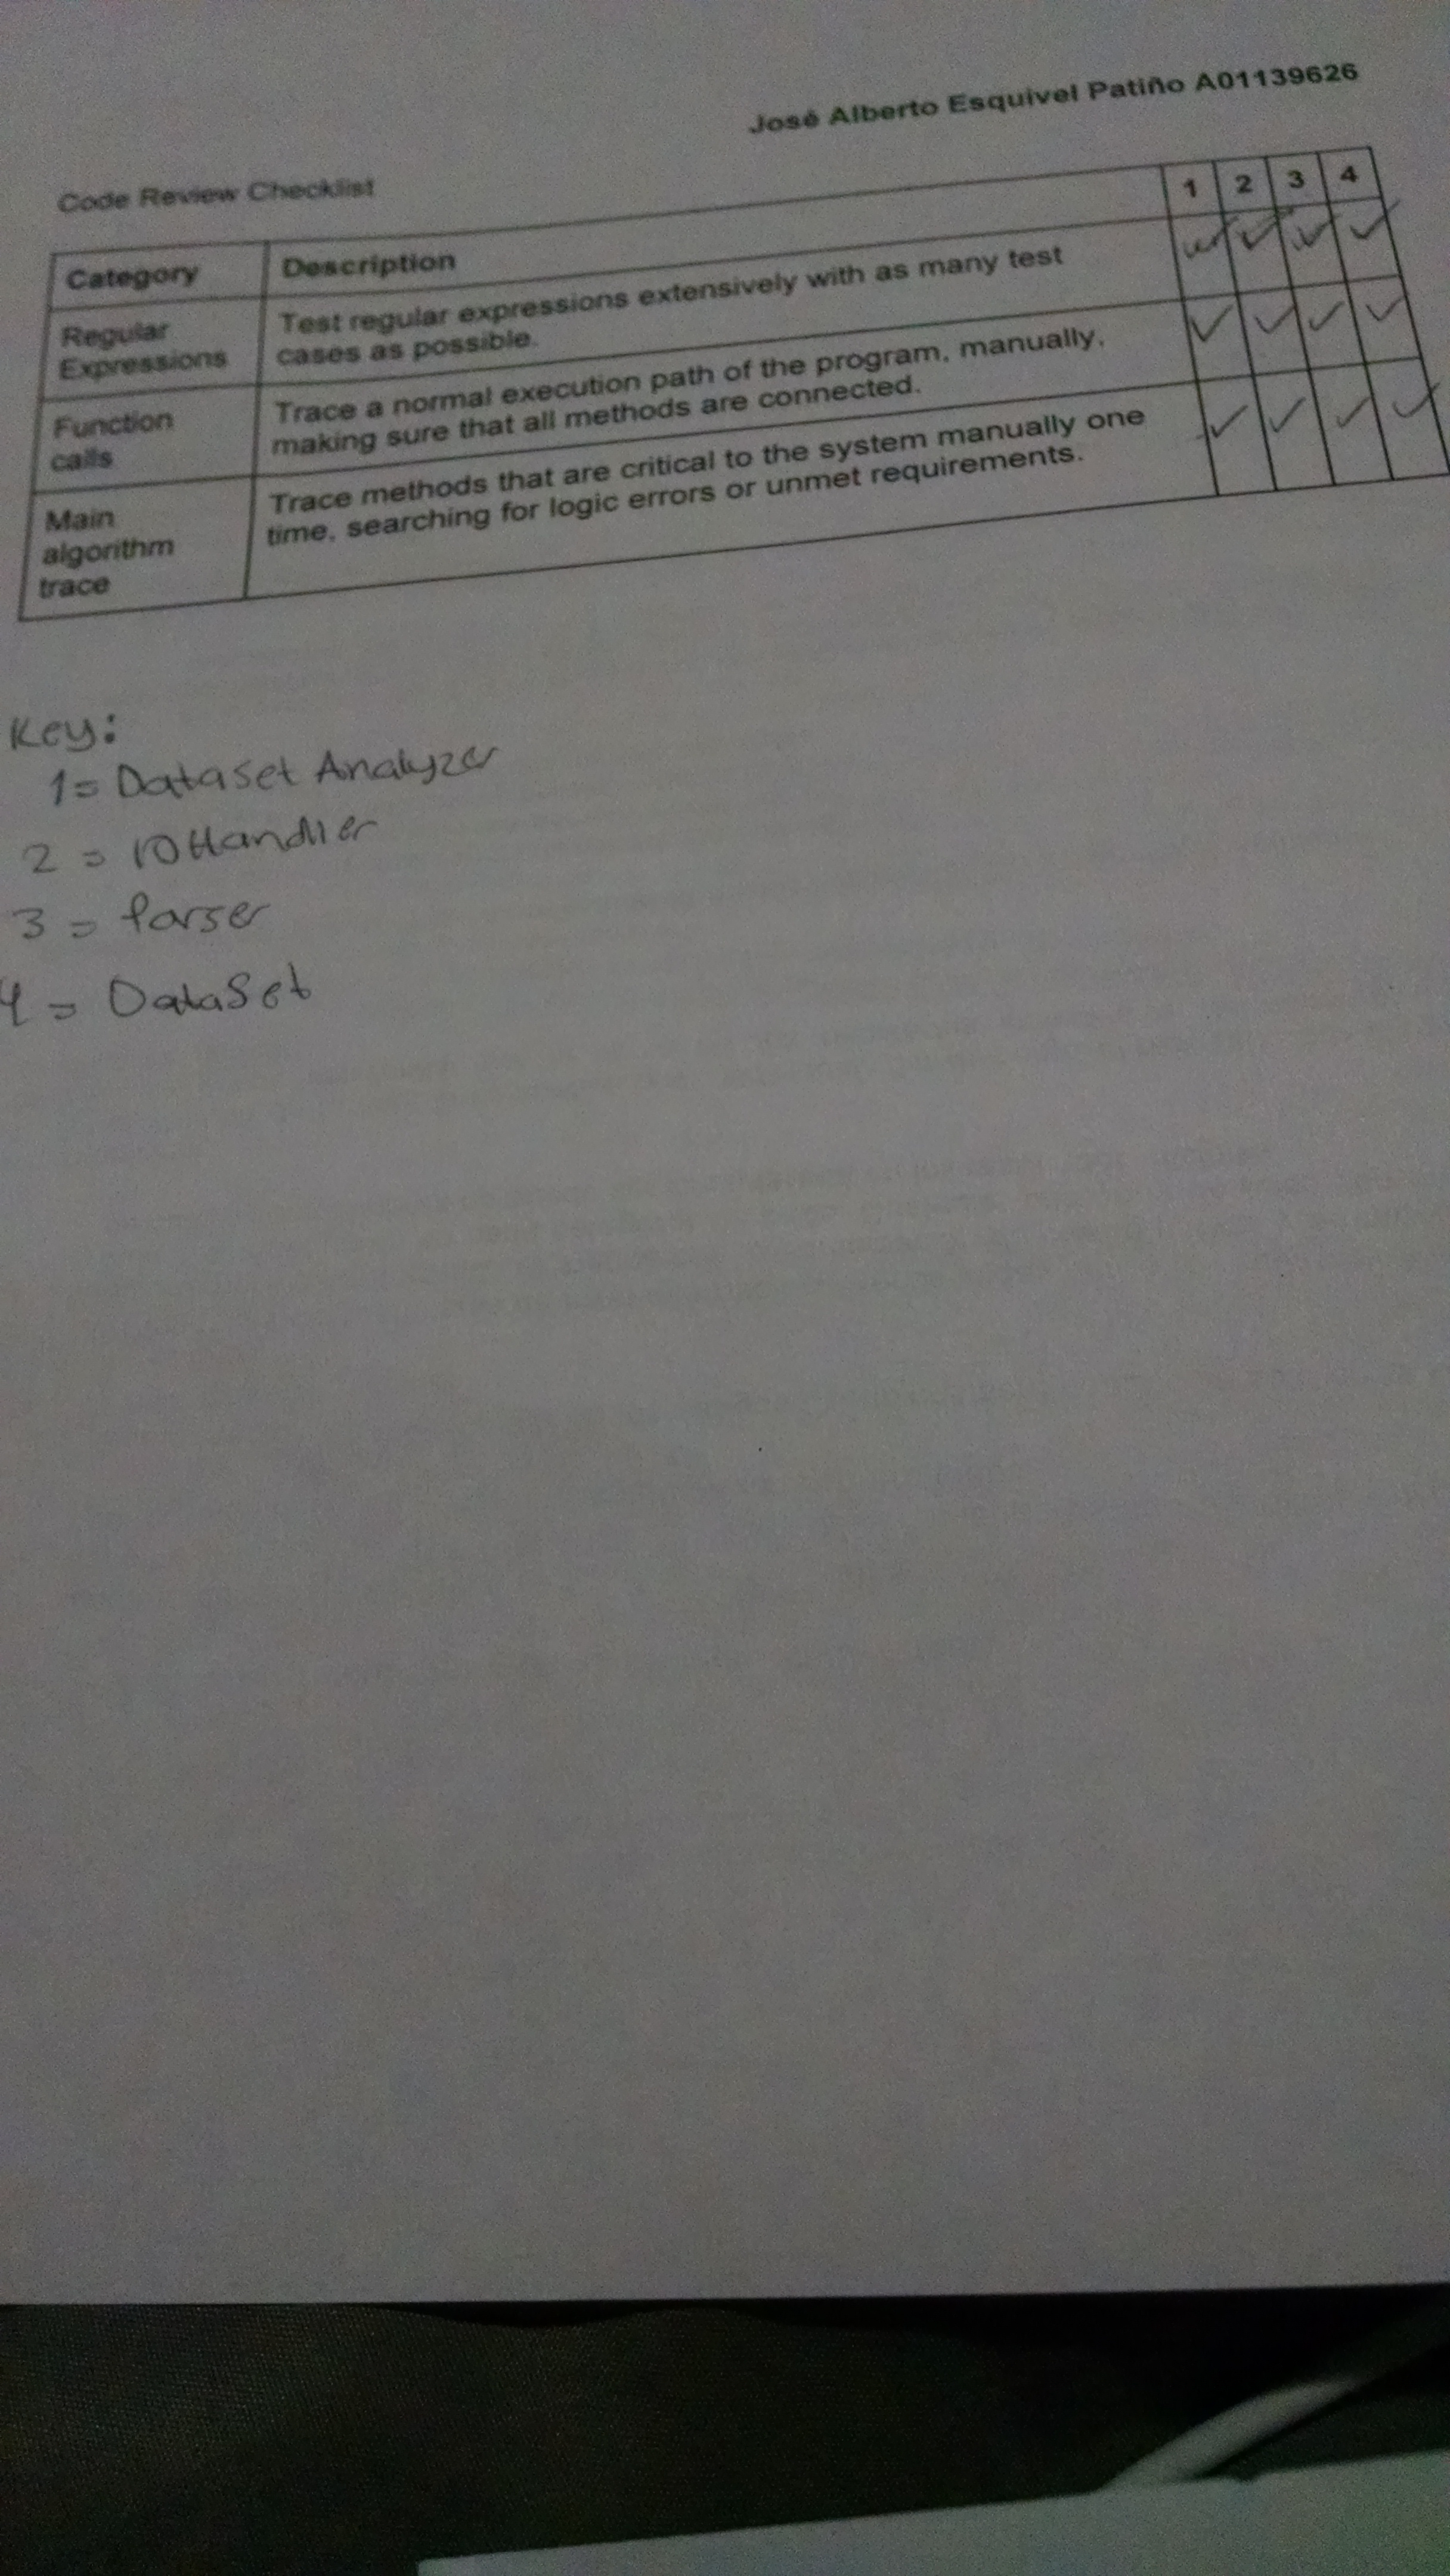 José Alberto Esquivel Patiño A01139626
Code Review Checklist
Category Description 1 2 3 4
Regular Expressions Test regular expressions extensively with as many test
cases as possible. ✓ ✓ ✓ ✓
Function calls Trace a normal execution path of the program, manually,
making sure that all methods are connected. ✓ ✓ ✓ ✓
Main algorithm trace Trace methods that are critical to the system manually one
time, searching for logic errors or unmet requirements. ✓ ✓ ✓ ✓
Key:
1= Dataset Analyzer
2 = IOHandler
3 = Parser
4 = DataSet